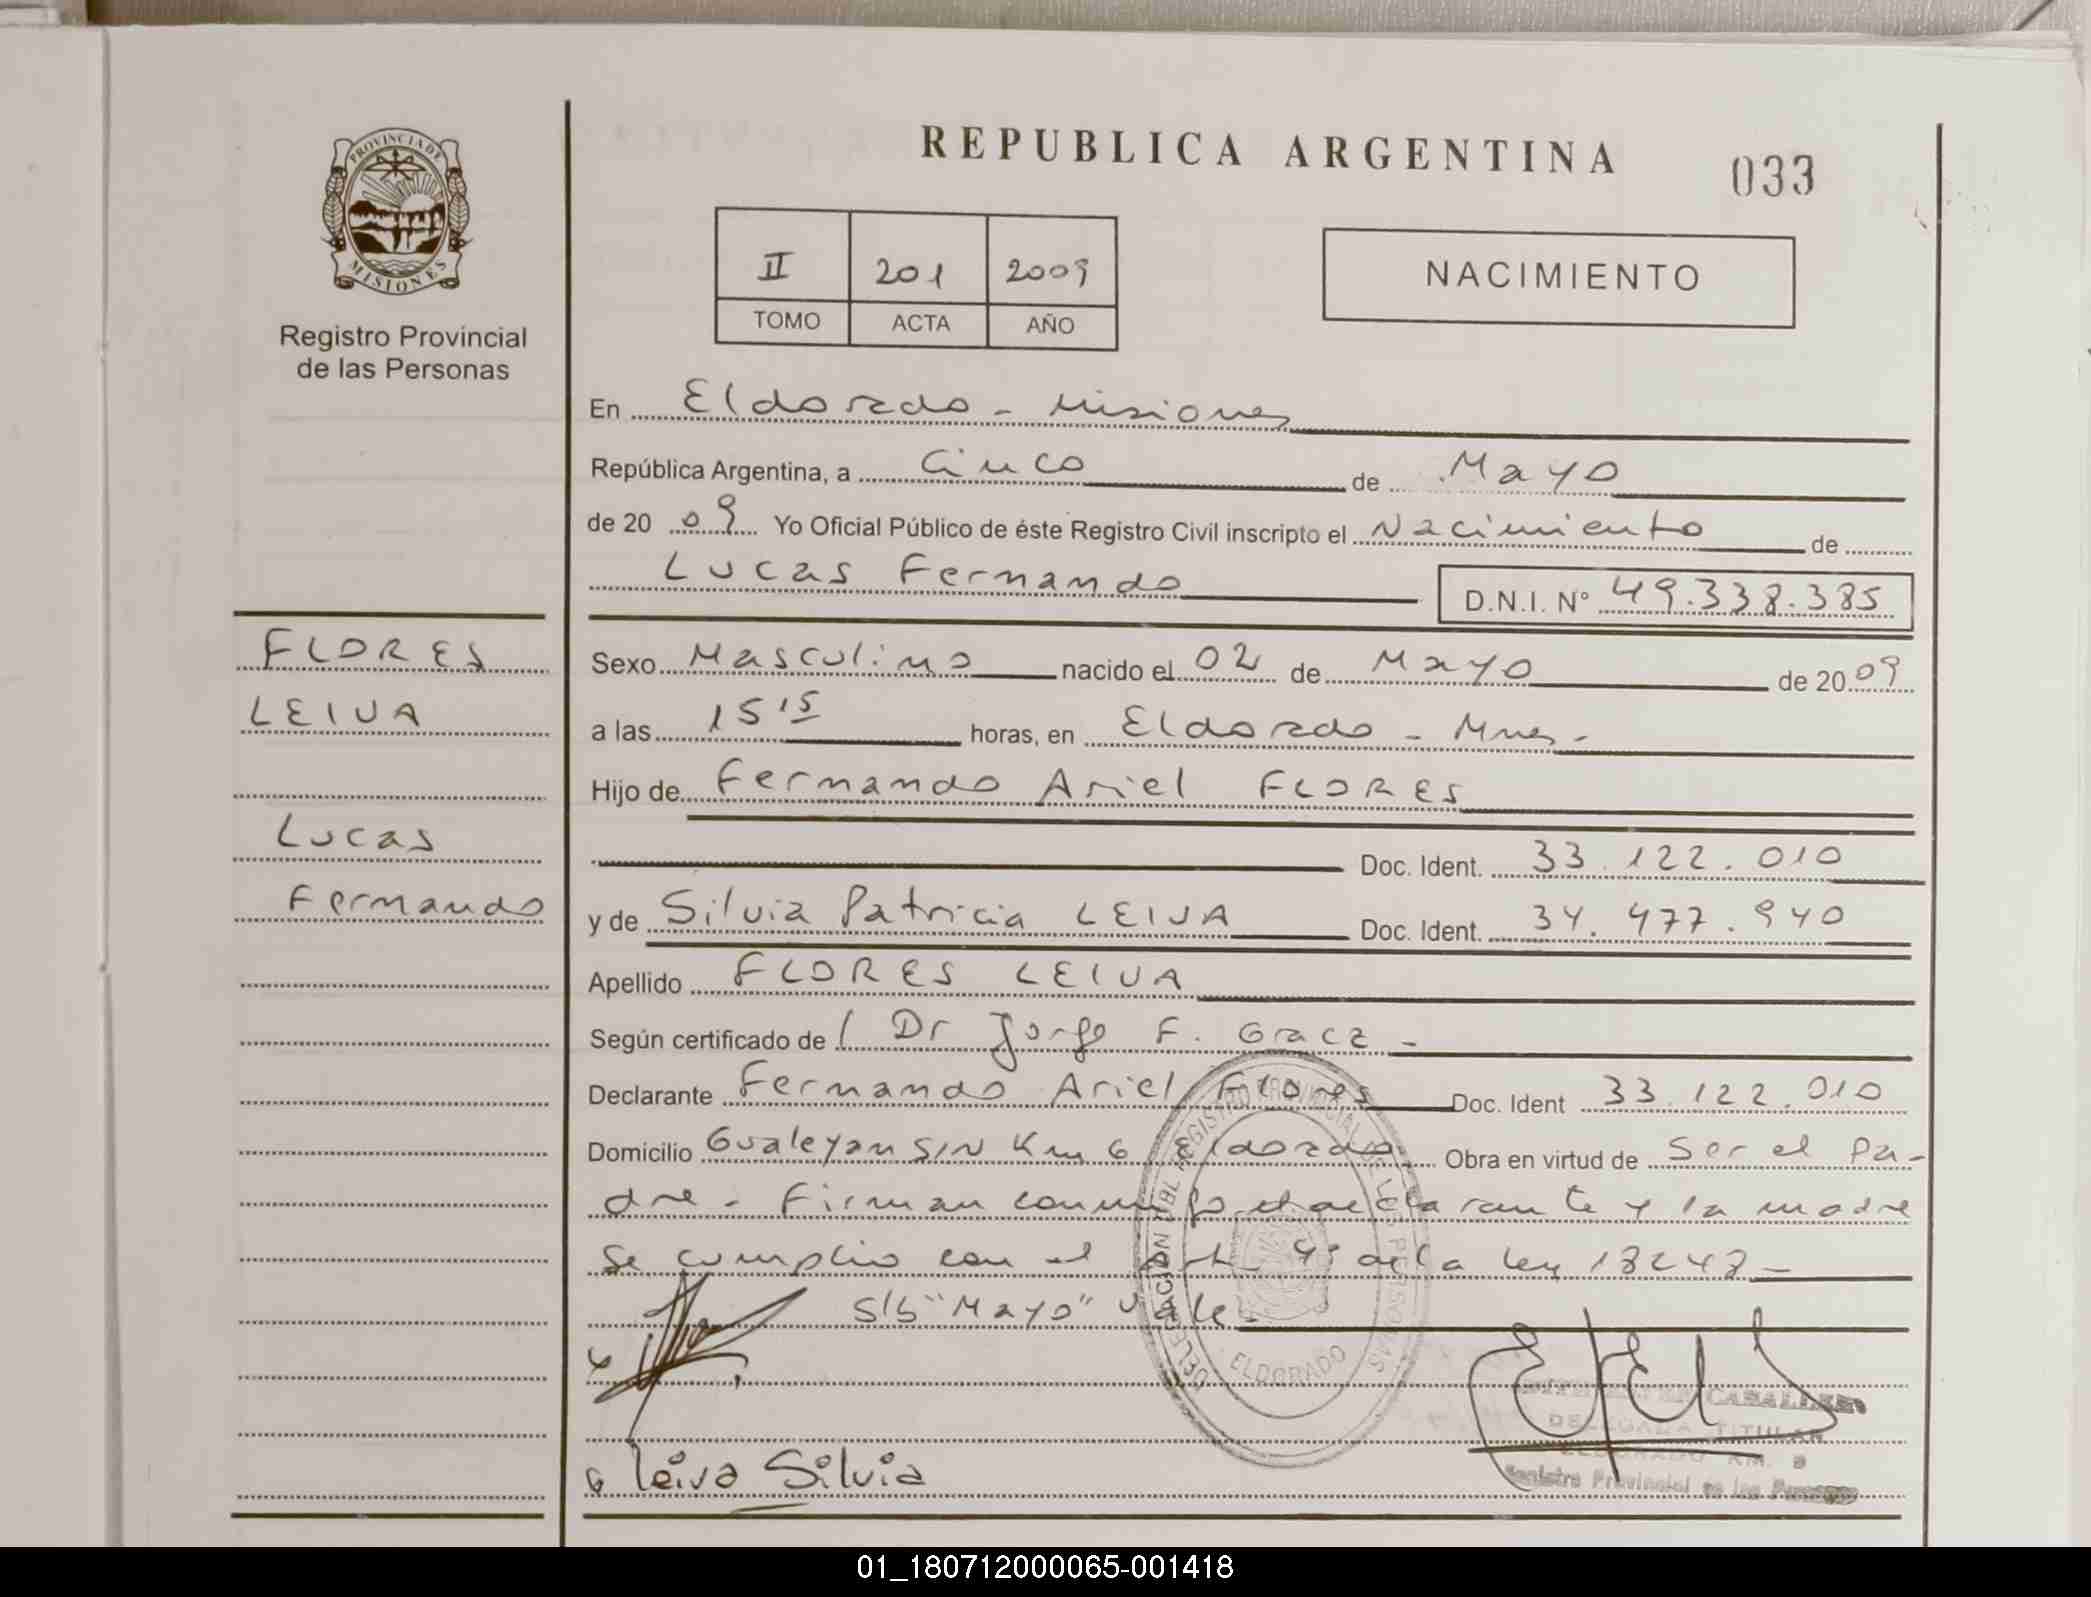 PROVINCIA DE
MISIONES
Registro Provincial
de las Personas
FLORES
LEIVA
Lucas
Fernando
REPUBLICA ARGENTINA
033
II 201 2009
TOMO ACTA AÑO
NACIMIENTO
En Eldorado - Misiones
República Argentina, a Cinco de Mayo
de 20 09 Yo Oficial Público de éste Registro Civil inscripto el Nacimiento de
Lucas Fernando D.N.I. N° 49.338.385
Sexo Masculino nacido el 02 de Mayo de 20 09
a las 15 15 horas, en Eldorado - Mnes -
Hijo de Fernando Ariel FLORES
Doc. Ident. 33.122.010
y de Silvia Patricia LEIVA Doc. Ident. 34.477.940
Apellido FLORES LEIVA
Según certificado de Dr Jorge F. Gracz -
Declarante Fernando Ariel Flores Doc. Ident 33.122.010
Domicilio Gualeyan S/N Km 6 Eldorado Obra en virtud de Ser el Pa-
dre - Firman conmigo el declarante y la madre
Se cumplio con el Art. 4° de la ley 18248 -
S/b "Mayo" Vale.
DELEGACION REGISTRO PROVINCIAL DE LAS PERSONAS
ELDORADO
CABALLERO
DELEGADA TITULAR
ELDORADO KM. 9
Registro Provincial de las Personas
Leiva Silvia
01_180712000065-001418